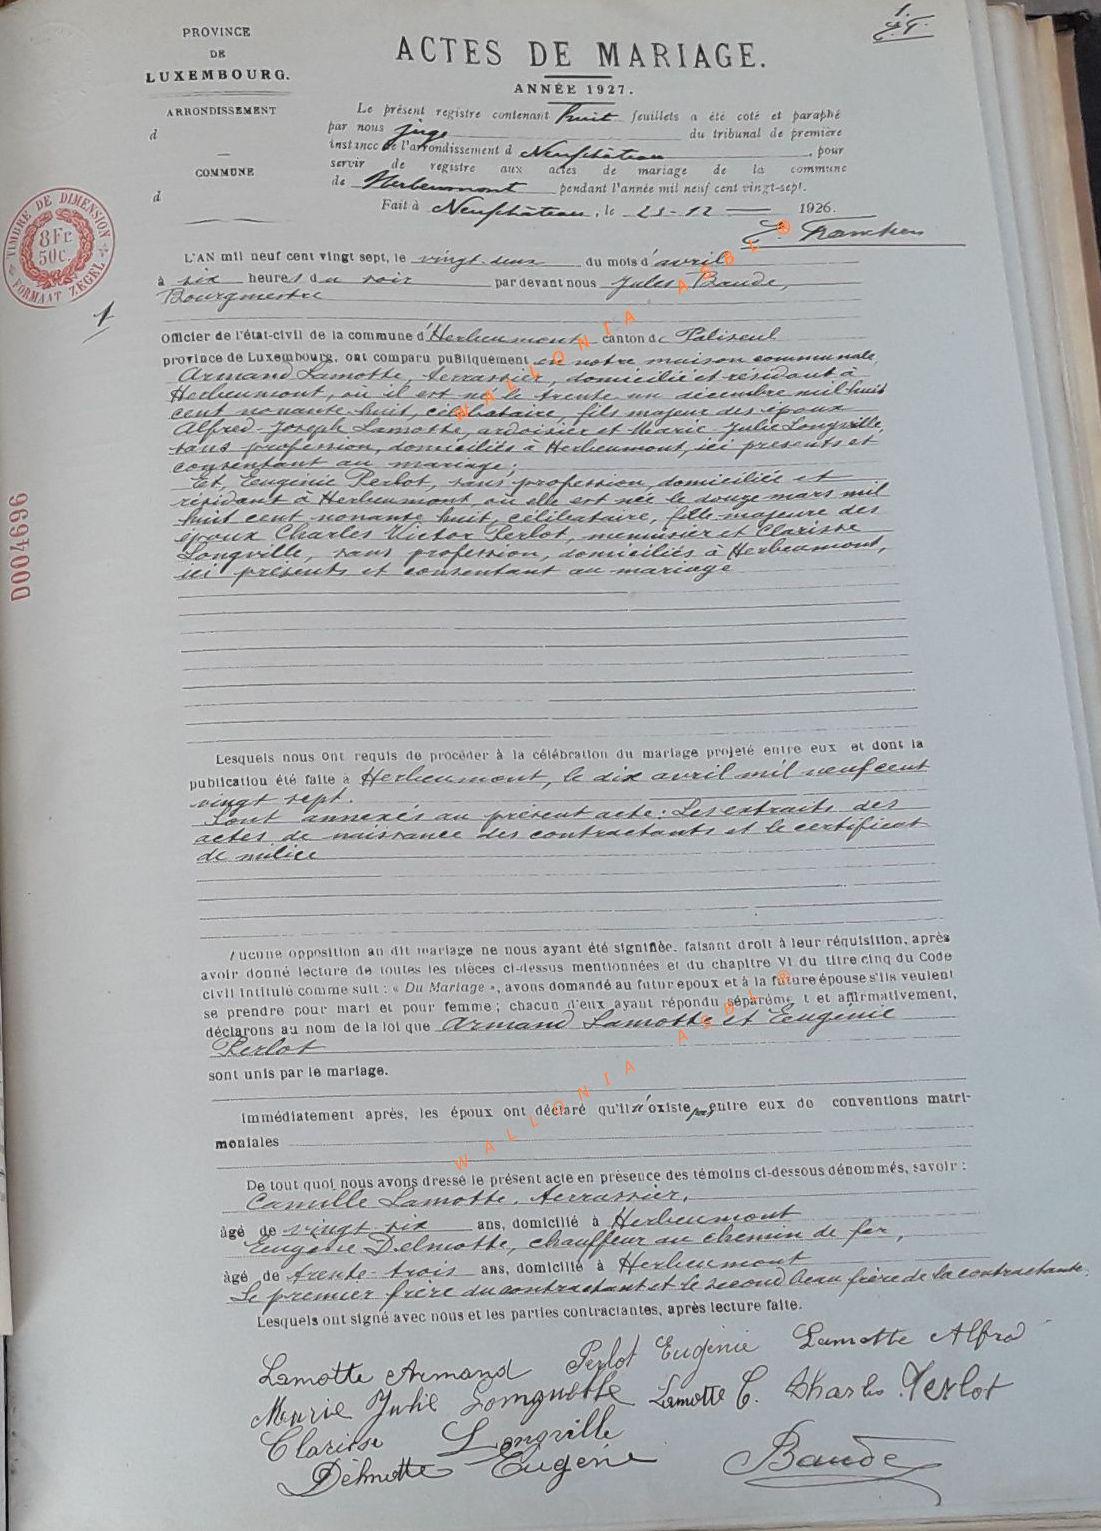 PROVINCE
DE
LUXEMBOURG.
ARRONDISSEMENT
d
COMMUNE
d
1.
ACTES DE MARIAGE.
ANNÉE 1927.
Le présent registre contenant huit feuillets a été coté et paraphé
par nous juge du tribunal de première
instance de l'arrondissement d Neufchâteau, pour
servir de registre aux actes de mariage de la commune
de Herbeumont pendant l'année mil neuf cent vingt-sept.
Fait à Neufchâteau, le 23-12 1926.
TIMBRE DE DIMENSION
8Fr.
50c.
FORMAAT ZEGEL
D004696
1
L'AN mil neuf cent vingt sept, le vingt-deux du mois d'avril
à six heures du soir par devant nous Jules Baude,
Bourgmestre
Officier de l'état-civil de la commune d'Herbeumont canton de Paliseul
province de Luxembourg, ont comparu publiquement en notre maison communale,
Armand Lamotte, terrassier, domicilié et résidant à
Herbeumont, où il est né le trente un décembre mil huit
cent nonante huit, célibataire, fils majeur des époux
Alfred-Joseph Lamotte, ardoisier et Marie-Julie Longville,
sans profession, domiciliés à Herbeumont, ici présents et
consentant au mariage;
Et, Eugénie Perlot, sans profession, domiciliée et
résidant à Herbeumont, où elle est née le douze mars mil
huit cent nonante huit, célibataire, fille majeure des
époux Charles Victor Perlot, menuisier et Clarisse
Longville, sans profession, domiciliés à Herbeumont,
ici présents et consentant au mariage
Lesquels nous ont requis de procéder à la célébration du mariage projeté entre eux et dont la
publication été faite à Herbeumont, le dix avril mil neuf cent
vingt sept.
Sont annexés au présent acte: Les extraits des
actes de naissance des contractants et le certificat
de milice
Aucune opposition au dit mariage ne nous ayant été signifiée, faisant droit à leur réquisition, après
avoir donné lecture de toutes les pièces ci-dessus mentionnées et du chapitre VI du titre cinq du Code
civil intitulé comme suit : « Du Mariage », avons demandé au futur époux et à la future épouse s'ils veulent
se prendre pour mari et pour femme ; chacun d'eux ayant répondu séparément et affirmativement,
déclarons au nom de la loi que Armand Lamotte et Eugénie
Perlot
sont unis par le mariage.
Immédiatement après, les époux ont déclaré qu'il n'existe pas entre eux de conventions matri-
moniales
De tout quoi nous avons dressé le présent acte en présence des témoins ci-dessous dénommés, savoir :
Camille Lamotte, terrassier,
âgé de vingt six ans, domicilié à Herbeumont
Eugène Delmotte, chauffeur au chemin de fer,
âgé de trente-trois ans, domicilié à Herbeumont
Le premier frère du contractant et le second beau frère de la contractante.
Lesquels ont signé avec nous et les parties contractantes, après lecture faite.
Lamotte Armand Perlot Eugénie Lamotte Alfred
Marie Julie Lamotte C. Charles Perlot
Clarisse Longville
Delmotte Eugène Baude
WALLONIA ASBL ®
WALLONIA ASBL ®